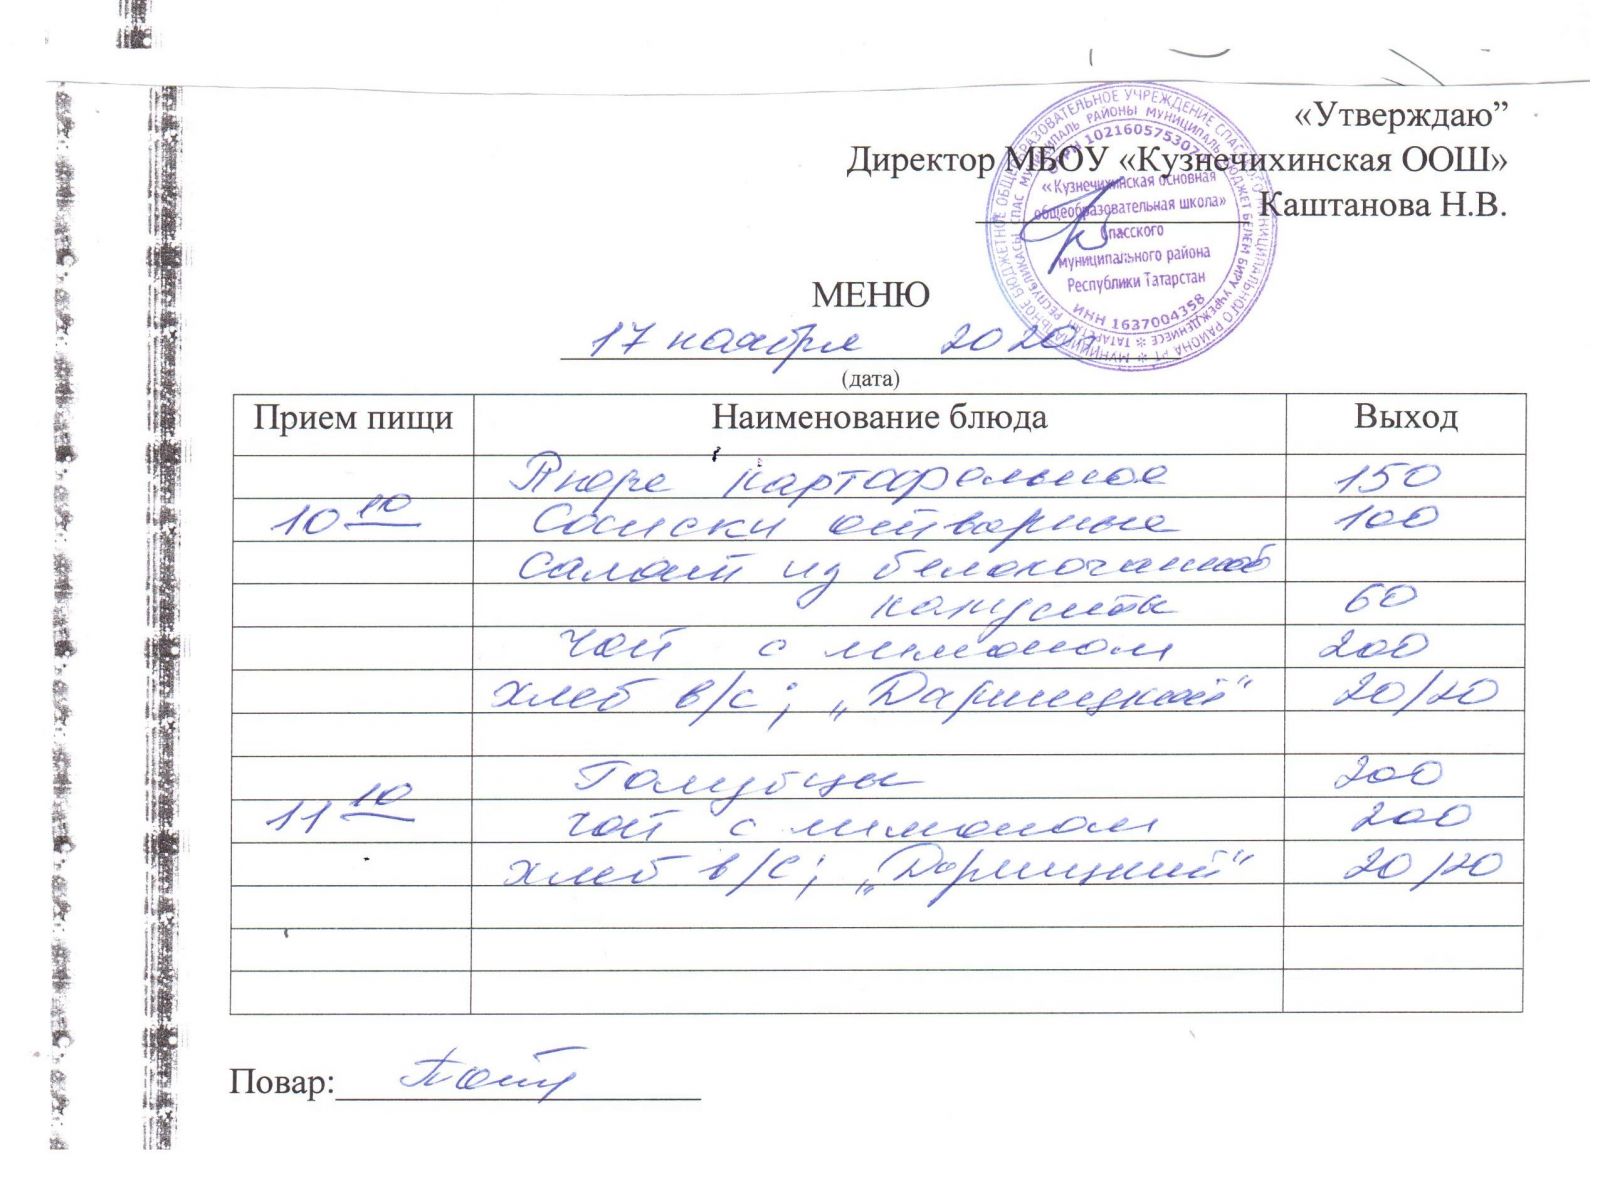 «Утверждаю”
Директор МБОУ «Кузнечихинская ООШ»
Каштанова Н.В.
МУНИЦИПАЛЬНОЕ БЮДЖЕТНОЕ ОБЩЕОБРАЗОВАТЕЛЬНОЕ УЧРЕЖДЕНИЕ СПАССКОГО МУНИЦИПАЛЬНОГО РАЙОНА РТ
«Кузнечихинская основная
общеобразовательная школа»
Спасского
муниципального района
Республики Татарстан
ИНН 1637004358
МЕНЮ
17 ноября 2020г
(дата)
Прием пищи Наименование блюда Выход
Пюре картофельное 150
10 10 Сосиски отварные 100
Салат из белокочанной
капусты 60
Чай с лимоном 200
Хлеб в/с; „Дарницкий“ 20/20
Голубцы 200
11 10 Чай с лимоном 200
Хлеб в/с; „Дарницкий“ 20/20
Повар: